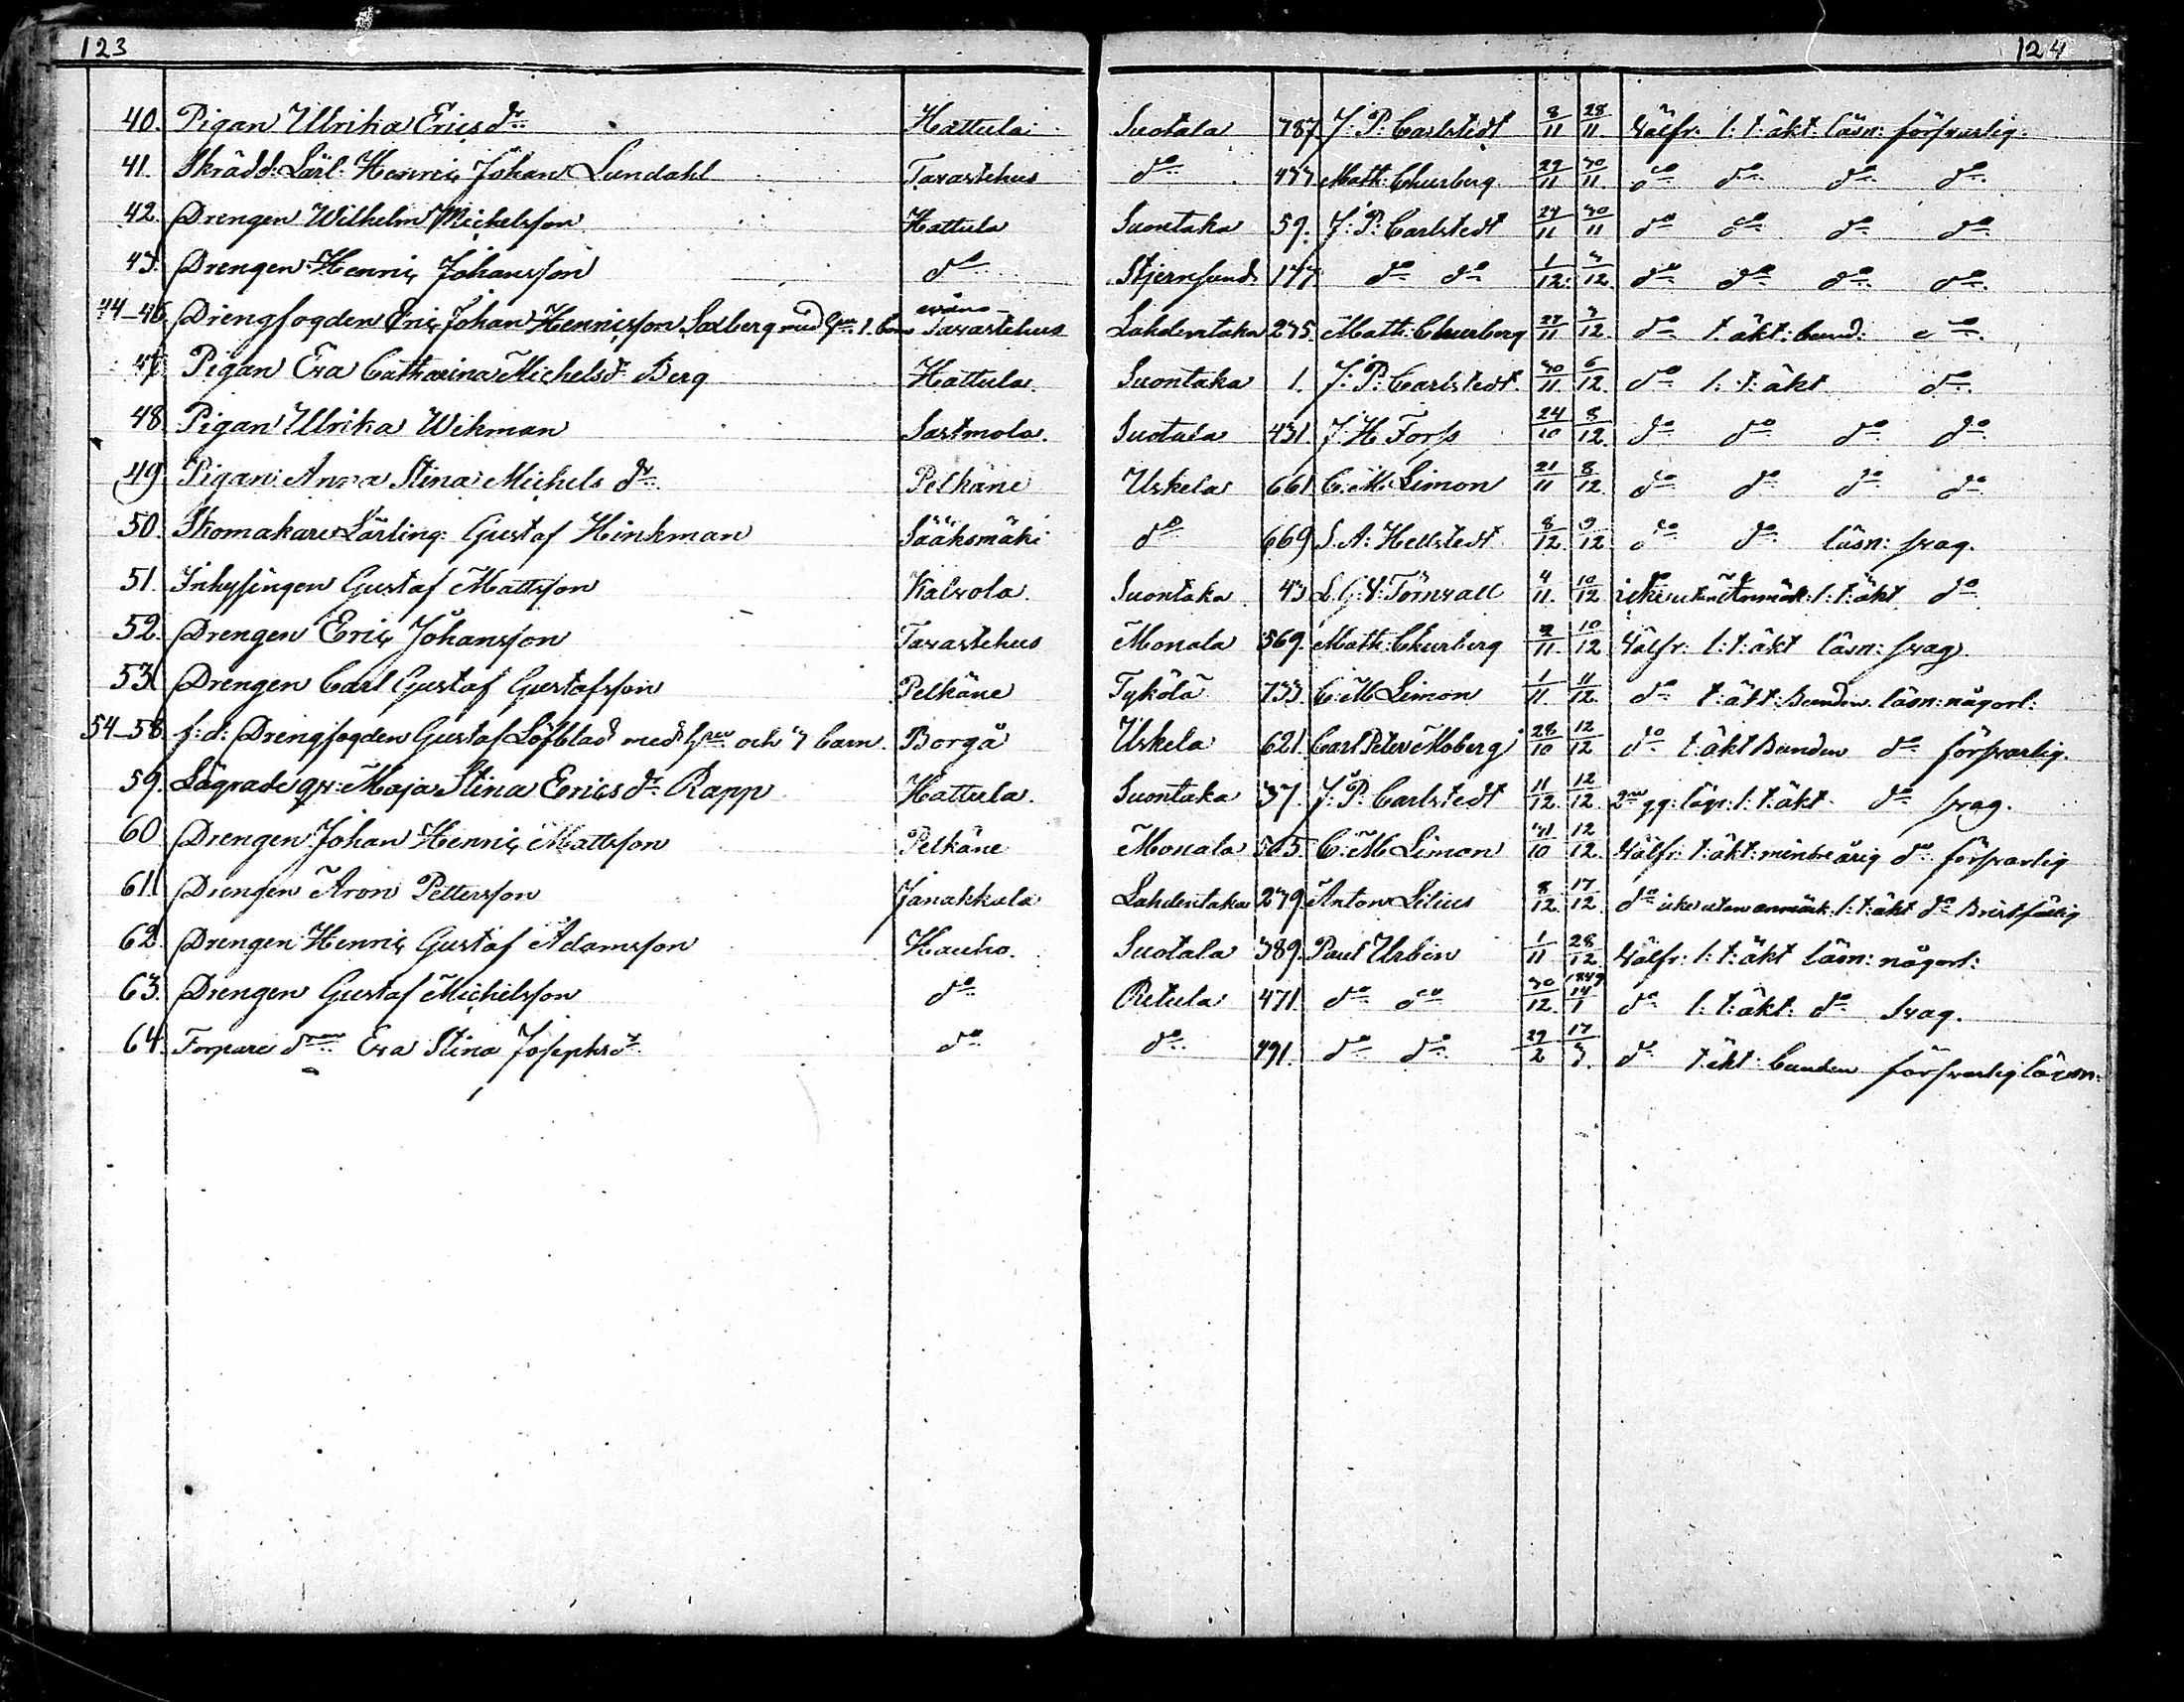 123
124
40. Pigan Ulrika Ericsdr. Hattula. Suotala 787 J: P: Carlstedt 8/11 28/11. Välfr. l: t: äkt. läsn: försvarlig.
41. Skrädd: Lärl: Henric Johan Lundahl Tavastehus do 433 Math: Churberg 29/11 30/11. do do do do
42. Drengen Wilhelm Michelsson Hattula Suontaka 59. J: P: Carlstedt 24/11 30/11 do do do do
43. Drengen Henric Johansson do Stjernsund 177 do do 1/12. 3/12. do do do do
44–46. Drengfogden Eric Johan Henricsson Saxberg med Hru. 1. barn Tavastehus Lahdentaka 275. Math: Churberg 27/11 3/12. do t. äkt: bund: do
47. Pigan Eva Catharina Michelsdr. Berg Hattula. Suontaka 1. J: P: Carlstedt. 30/11. 6/12. do l: t: äkt do
48. Pigan Ulrika Wikman Sastmola. Suotala 431 J H Forss 24/10 8/12. do do do do
49. Pigan Anna Stina Michels dr. Pelkäne Uskela 661 C: M: Limon 21/11 8/12. do do do do
50. Skomakare Lärling: Gustaf Hinkman Sääksmäki do 669 S. A: Hellstedt 8/12. 9/12 do do läsn: svag.
51. Inhysingen Gustaf Mattsson Kalvola. Suontaka 43 L. G: V: Törnvall 4/11. 10/12 icke utan Anmärk: l: t: äkt do
52. Drengen Eric Johansson Tavastehus Monala 569. Math: Churberg 9/11. 10/12 Välfr: l: t: äkt läsn: svag
53. Drengen Carl Gustaf Gustafsson Pelkäne Tykölä 733. C: M Limon 1/11. 11/12. do t: äkt: Bunden. läsn: någorl:
54–58. f: d: Drengfogden Gustaf Löfblad med Hru och 3 barn. Borgå Uskela 621. Carl Peter Moberg 28/10 12/12 do t: äkt Bunden do försvarlig.
59. Lägrade qv: Maja Stina Ericsdr. Rapp Hattula. Suontaka 37. J: P: Carlstedt 11/12. 12/12. 2ne gg: lägr: l: t: äkt. do svag.
60 Drengen Johan Henric Mattsson Pelkäne Monala 505. C: M Limon 31/10 12/12. Välfr: t: äkt: mindreårig do försvarlig
61. Drengen Aron Pettersson Janakkala Lahdentaka 279. Anton Lilius 8/12. 17/12. do icke utan anmärk: l: t: äkt do Bristfällig
62. Drengen Henric Gustaf Adamsson Hauho. Suotala 389. Paul Urbin 1/11 28/12. Välfr: l: t: äkt läsn: någorl:
63. Drengen Gustaf Michelsson do Retula 471. do do 30/12. 1849 14/1 do l: t: äkt: do svag.
64. Torpare dran Eva Stina Josephsdr. do do 491. do do 29/2 17/3. do t äkt: bunden försvarlig läsn: